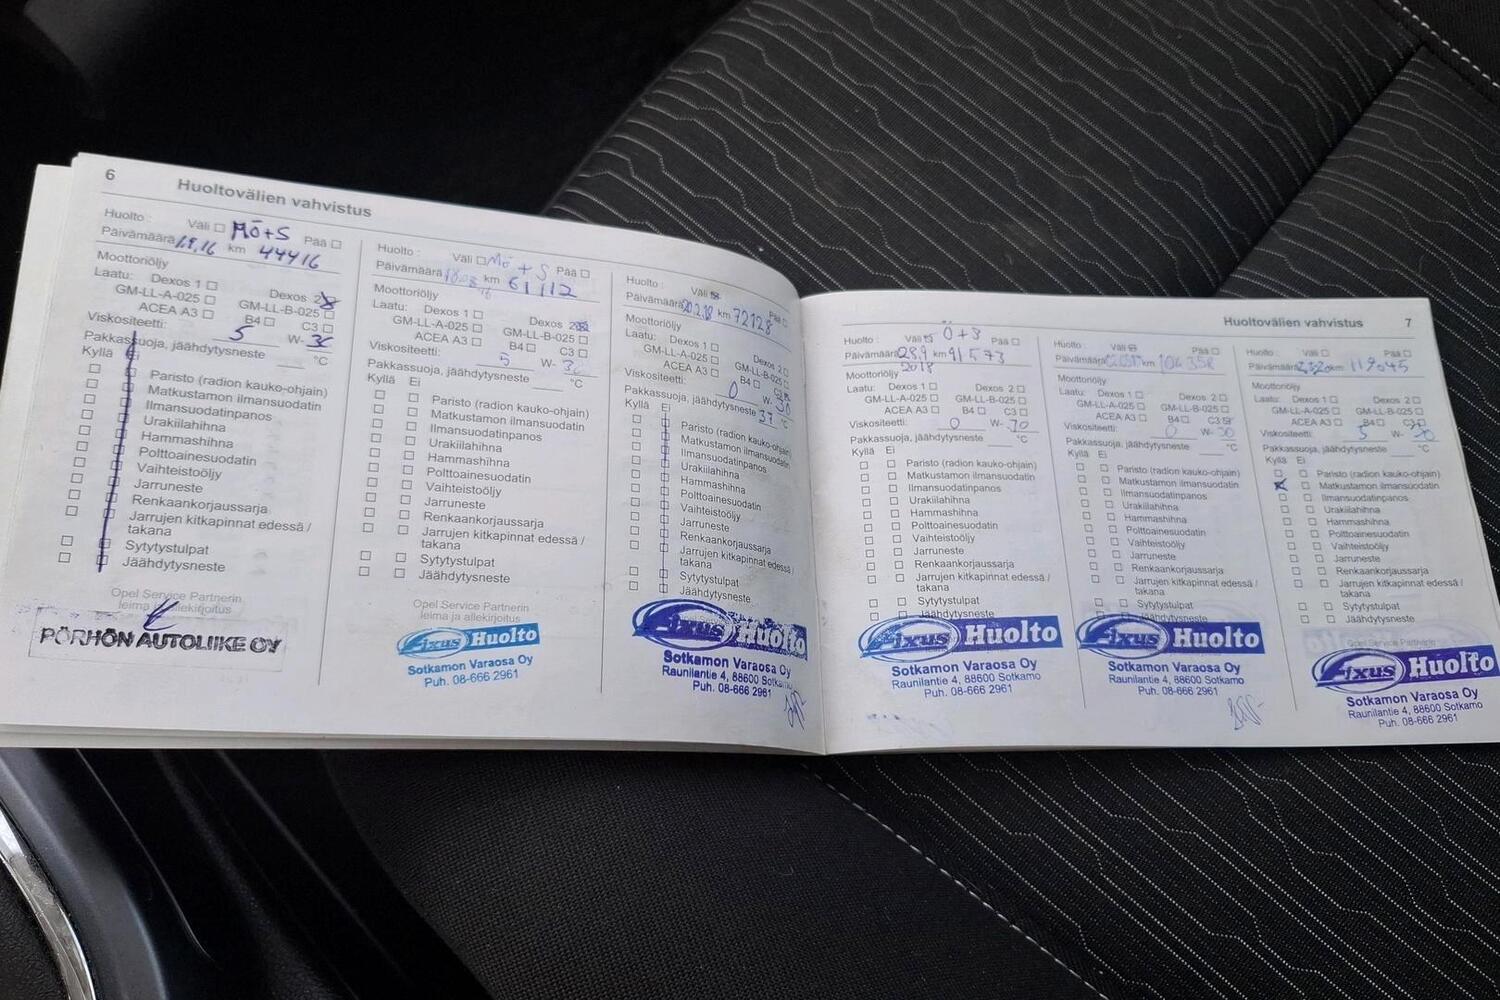 6 Huoltovälien vahvistus
Huolto : Väli ☐ MÖ+S Pää ☐
Päivämäärä 1.9.16 km 44416
Moottoriöljy
Laatu: Dexos 1 ☐ Dexos 2 ☒
GM-LL-A-025 ☐ GM-LL-B-025 ☐
ACEA A3 ☐ B4 ☐ C3 ☐
Viskositeetti: 5 W- 30
Pakkassuoja, jäähdytysneste °C
Kyllä
☐ Paristo (radion kauko-ohjain)
☐ Matkustamon ilmansuodatin
☐ Ilmansuodatinpanos
☐ Urakiilahihna
☐ Hammashihna
☐ Polttoainesuodatin
☐ Vaihteistoöljy
☐ Jarruneste
☐ Renkaankorjaussarja
☐ Jarrujen kitkapinnat edessä /
takana
☐ Sytytystulpat
☐ Jäähdytysneste
Opel Service Partnerin
leima ja allekirjoitus
PÖRHÖN AUTOLIIKE OY
Huolto : Väli ☐ Mö + S Pää ☐
Päivämäärä km 61112
Moottoriöljy
Laatu: Dexos 1 ☐ Dexos 2 ☒
GM-LL-A-025 ☐ GM-LL-B-025 ☐
ACEA A3 ☐ B4 ☐ C3 ☐
Viskositeetti: 5 W- 30
Pakkassuoja, jäähdytysneste °C
Kyllä Ei
☐ ☐ Paristo (radion kauko-ohjain)
☐ ☐ Matkustamon ilmansuodatin
☐ ☐ Ilmansuodatinpanos
☐ ☐ Urakiilahihna
☐ ☐ Hammashihna
☐ ☐ Polttoainesuodatin
☐ ☐ Vaihteistoöljy
☐ ☐ Jarruneste
☐ ☐ Renkaankorjaussarja
☐ ☐ Jarrujen kitkapinnat edessä /
takana
☐ ☐ Sytytystulpat
☐ ☐ Jäähdytysneste
Opel Service Partnerin
leima ja allekirjoitus
Fixus Huolto
Sotkamon Varaosa Oy
Puh. 08-666 2961
Huolto : Väli ☒ Pää ☐
Päivämäärä 20.2.18 km 72128
Moottoriöljy
Laatu: Dexos 1 ☐ Dexos 2 ☐
GM-LL-A-025 ☐ GM-LL-B-025 ☐
ACEA A3 ☐ B4 ☐ C3 ☒
Viskositeetti: 0 W- 30
Pakkassuoja, jäähdytysneste 37 °C
Kyllä Ei
☐ ☐ Paristo (radion kauko-ohjain)
☐ ☐ Matkustamon ilmansuodatin
☐ ☐ Ilmansuodatinpanos
☐ ☐ Urakiilahihna
☐ ☐ Hammashihna
☐ ☐ Polttoainesuodatin
☐ ☐ Vaihteistoöljy
☐ ☐ Jarruneste
☐ ☐ Renkaankorjaussarja
☐ ☐ Jarrujen kitkapinnat edessä /
takana
☐ ☐ Sytytystulpat
☐ ☐ Jäähdytysneste
Fixus Huolto
Sotkamon Varaosa Oy
Raunilantie 4, 88600 Sotkamo
Puh. 08-666 2961
Huoltovälien vahvistus 7
Huolto : Väli ☒ Ö+S Pää ☐
Päivämäärä 28.9 km 91573
2018
Moottoriöljy
Laatu: Dexos 1 ☐ Dexos 2 ☐
GM-LL-A-025 ☐ GM-LL-B-025 ☐
ACEA A3 ☐ B4 ☐ C3 ☐
Viskositeetti: 0 W-
Pakkassuoja, jäähdytysneste °C
Kyllä Ei
☐ ☐ Paristo (radion kauko-ohjain)
☐ ☐ Matkustamon ilmansuodatin
☐ ☐ Ilmansuodatinpanos
☐ ☐ Urakiilahihna
☐ ☐ Hammashihna
☐ ☐ Polttoainesuodatin
☐ ☐ Vaihteistoöljy
☐ ☐ Jarruneste
☐ ☐ Renkaankorjaussarja
☐ ☐ Jarrujen kitkapinnat edessä /
takana
☐ ☐ Sytytystulpat
☐ ☐ Jäähdytysneste
Fixus Huolto
Sotkamon Varaosa Oy
Raunilantie 4, 88600 Sotkamo
Puh. 08-666 2961
Huolto : Väli ☒ Pää ☐
Päivämäärä km 104358
Moottoriöljy
Laatu: Dexos 1 ☐ Dexos 2 ☐
GM-LL-A-025 ☐ GM-LL-B-025 ☐
ACEA A3 ☐ B4 ☐ C3 ☒
Viskositeetti: 0 W- 30
Pakkassuoja, jäähdytysneste °C
Kyllä Ei
☐ ☐ Paristo (radion kauko-ohjain)
☐ ☐ Matkustamon ilmansuodatin
☐ ☐ Ilmansuodatinpanos
☐ ☐ Urakiilahihna
☐ ☐ Hammashihna
☐ ☐ Polttoainesuodatin
☐ ☐ Vaihteistoöljy
☐ ☐ Jarruneste
☐ ☐ Renkaankorjaussarja
☐ ☐ Jarrujen kitkapinnat edessä /
takana
☐ ☐ Sytytystulpat
☐ ☐ Jäähdytysneste
Fixus Huolto
Sotkamon Varaosa Oy
Raunilantie 4, 88600 Sotkamo
Puh. 08-666 2961
Huolto : Väli ☐ Pää ☐
Päivämäärä km 119045
Moottoriöljy
Laatu: Dexos 1 ☐ Dexos 2 ☐
GM-LL-A-025 ☐ GM-LL-B-025 ☐
ACEA A3 ☐ B4 ☐ C3 ☐
Viskositeetti: 5 W-
Pakkassuoja, jäähdytysneste °C
Kyllä Ei
☐ ☐ Paristo (radion kauko-ohjain)
☒ ☐ Matkustamon ilmansuodatin
☐ ☐ Ilmansuodatinpanos
☐ ☐ Urakiilahihna
☐ ☐ Hammashihna
☐ ☐ Polttoainesuodatin
☐ ☐ Vaihteistoöljy
☐ ☐ Jarruneste
☐ ☐ Renkaankorjaussarja
☐ ☐ Jarrujen kitkapinnat edessä /
takana
☐ ☐ Sytytystulpat
☐ ☐ Jäähdytysneste
Opel Service Partnerin
Fixus Huolto
Sotkamon Varaosa Oy
Raunilantie 4, 88600 Sotkamo
Puh. 08-666 2961